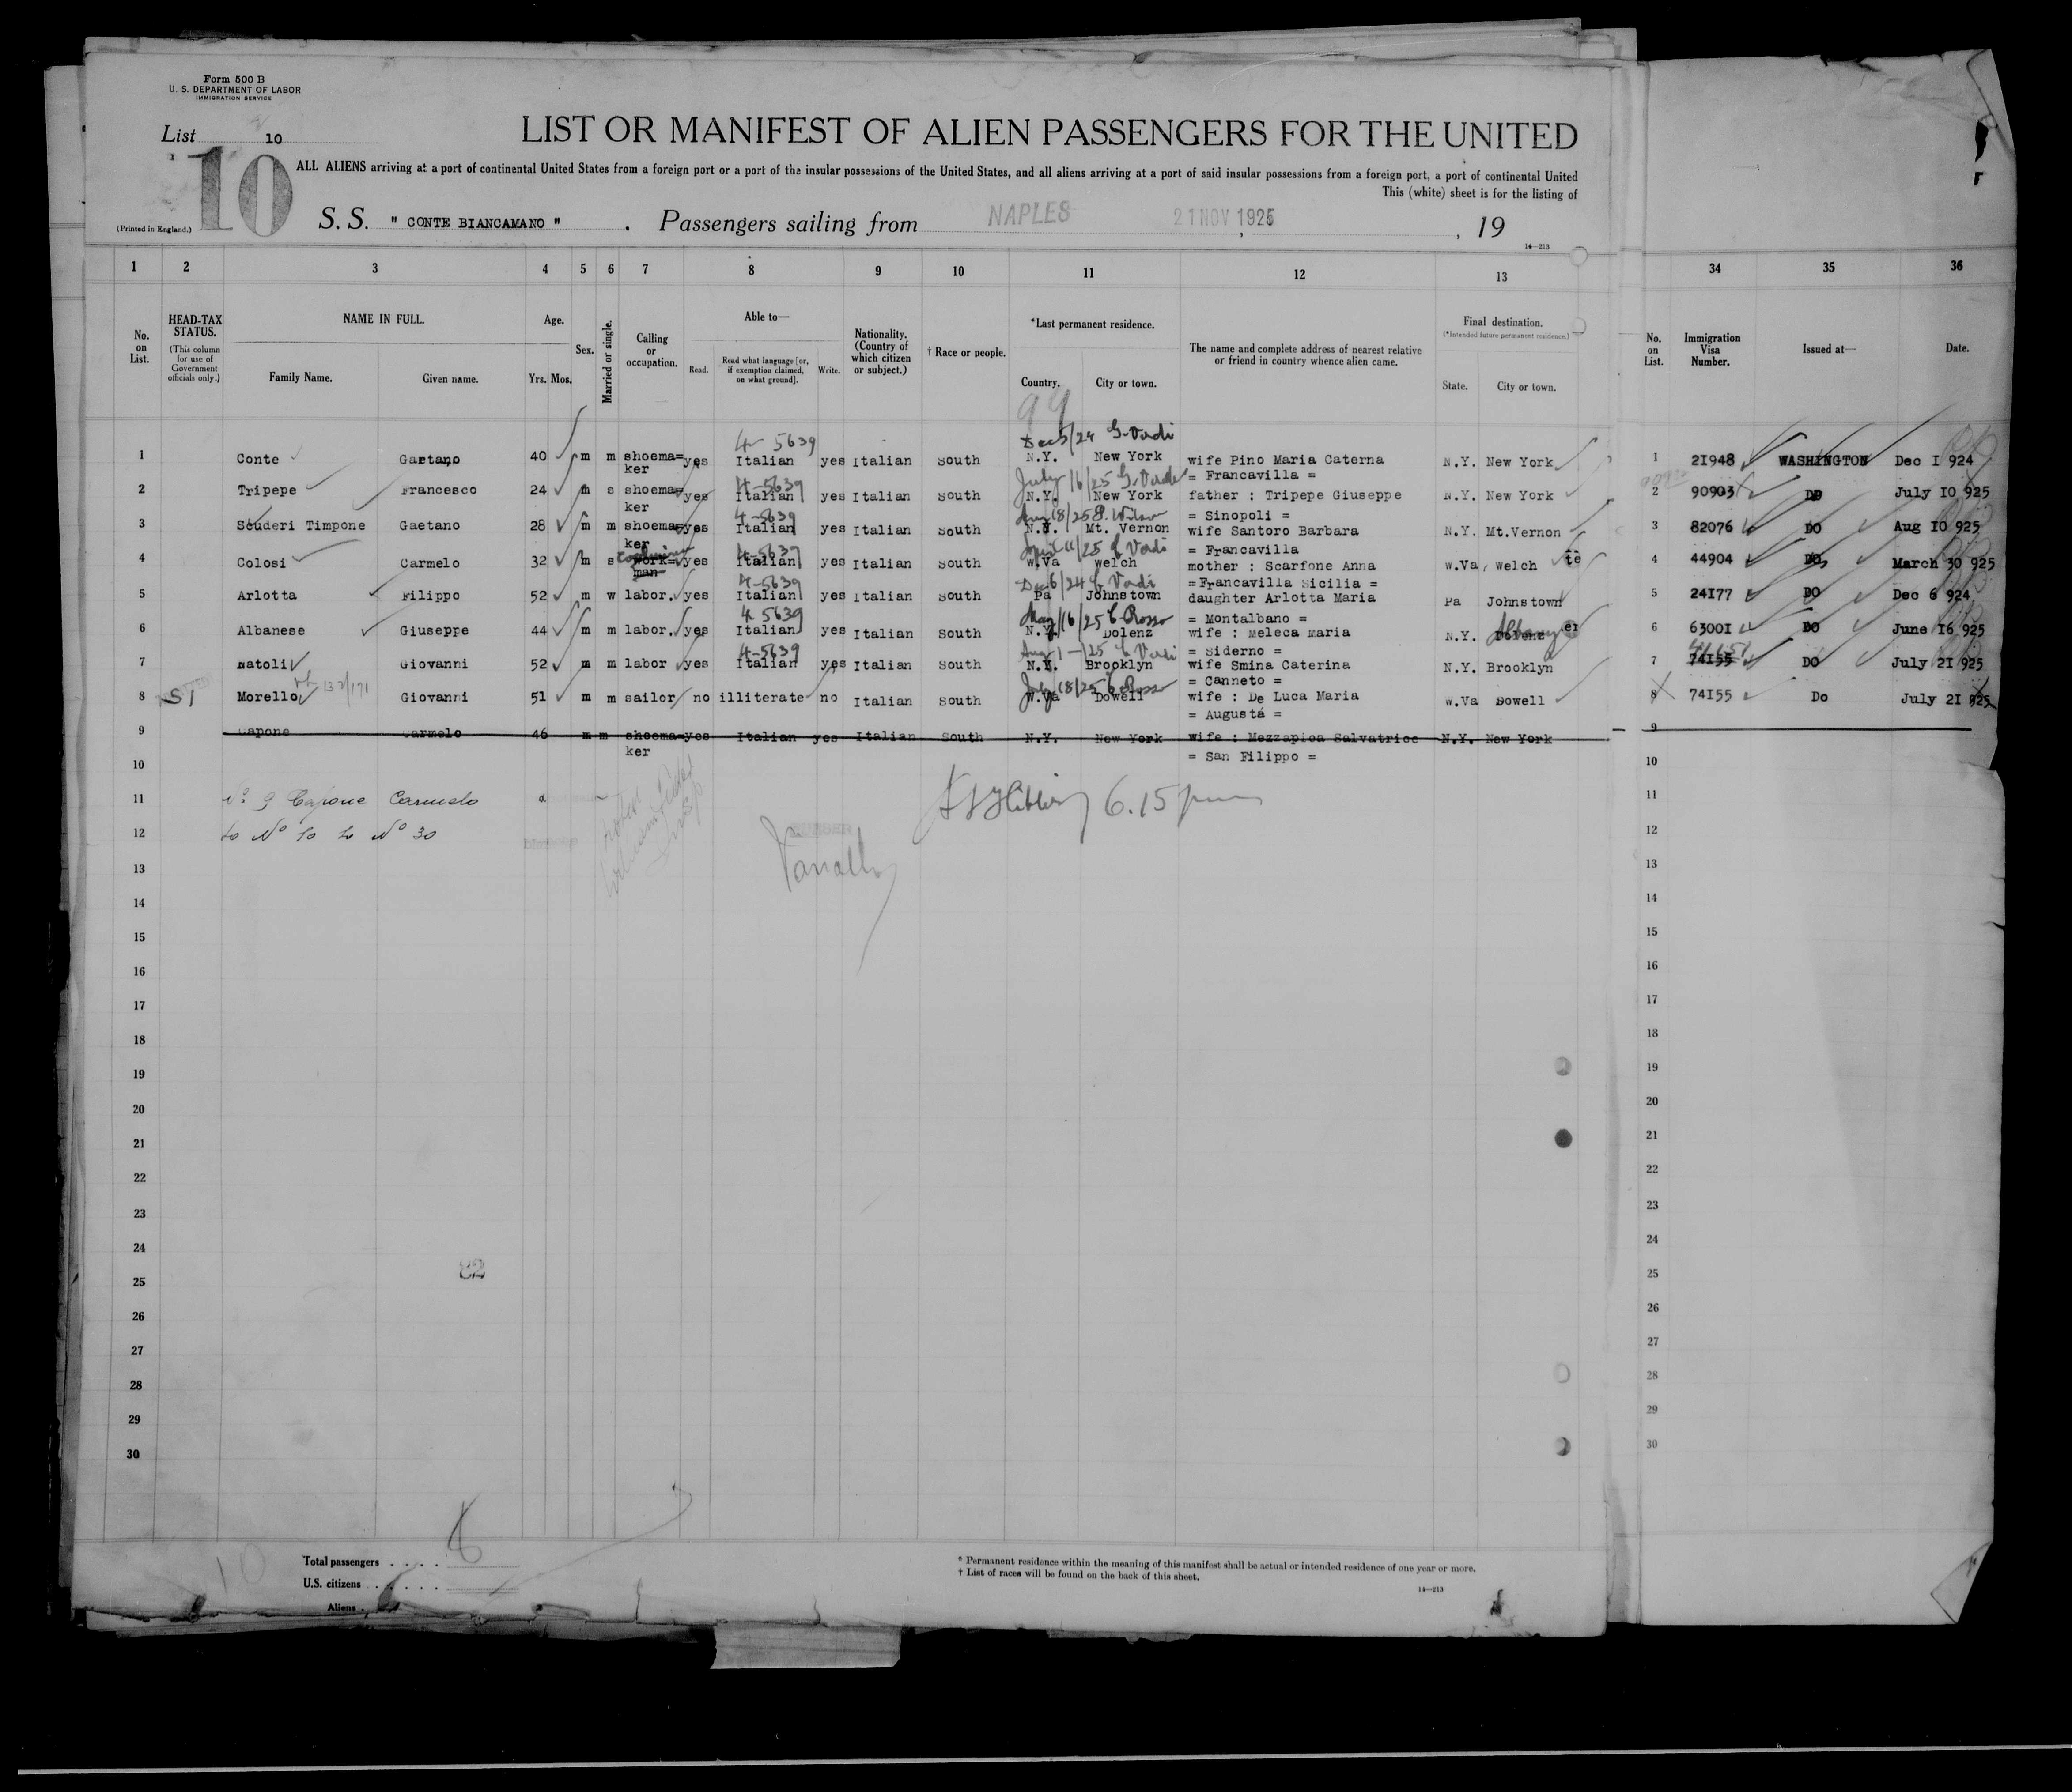 Form 500 B
U. S. DEPARTMENT OF LABOR
IMMIGRATION SERVICE
List 10
10
LIST OR MANIFEST OF ALIEN PASSENGERS FOR THE UNITED
ALL ALIENS arriving at a port of continental United States from a foreign port or a port of the insular possessions of the United States, and all aliens arriving at a port of said insular possessions from a foreign port, a port of continental United
This (white) sheet is for the listing of
(Printed in England.)
S. S. " CONTE BIANCAMANO " . Passengers sailing from NAPLES 21 NOV 1925 , 19
14—213
1 2 3 4 5 6 7 8 9 10 11 12 13 34 35 36
No. on List.
HEAD-TAX STATUS.
(This column for use of Government officials only.)
NAME IN FULL.
Family Name. Given name.
Age.
Yrs. Mos.
Sex.
Married or single.
Calling or occupation.
Able to—
Read. Read what language [or, if exemption claimed, on what ground]. Write.
Nationality. (Country of which citizen or subject.)
† Race or people.
*Last permanent residence.
Country. City or town.
The name and complete address of nearest relative or friend in country whence alien came.
Final destination.
(*Intended future permanent residence.)
State. City or town.
No. on List.
Immigration Visa Number.
Issued at—
Date.
99
4- 5639 Dec 5/24 G. Verdi
1 Conte Gaetano 40 m m shoema= yes Italian yes Italian South N.Y. New York wife Pino Maria Caterna N.Y. New York 1 21948 WASHINGTON Dec 1 924
ker = Francavilla =
4-5639 July 16/25 G. Verdi
2 Tripepe Francesco 24 m s shoema= yes Italian yes Italian South N.Y. New York father : Tripepe Giuseppe N.Y. New York 2 90903 DO July 10 925
ker = Sinopoli =
4-5639 Aug 18/25 P. Wilson
3 Scuderi Timpone Gaetano 28 m m shoema= yes Italian yes Italian South N.Y. Mt. Vernon wife Santoro Barbara N.Y. Mt.Vernon 3 82076 DO Aug 10 925
ker = Francavilla
4-5639 April 11/25 C Verdi
4 Colosi Carmelo 32 m s work= yes Italian yes Italian South W.Va Welch mother : Scarfone Anna W.Va, Welch te 4 44904 DO March 30 925
man =Francavilla Sicilia =
4-5639 Dec 6/24 C Verdi
5 Arlotta Filippo 52 m w labor. yes Italian yes Italian South Pa Johnstown daughter Arlotta Maria Pa Johnstown 5 24177 DO Dec 6 924
= Montalbano =
4 5639 May 16/25 C Rosso
6 Albanese Giuseppe 44 m m labor. yes Italian yes Italian South N.Y. Dolenz wife : Meleca Maria N.Y. Albany er 6 63001 DO June 16 925
= Siderno =
4-5639 Aug 1—/25 C Verdi
7 Natoli Giovanni 52 m m labor yes Italian yes Italian South N.Y. Brooklyn wife Smina Caterina N.Y. Brooklyn 7 74155 DO July 21 925
= Canneto =
July 18/25 C Rosso
8 SI Morello Giovanni 51 m m sailor no illiterate no Italian South W.Va Dowell wife : De Luca Maria W.Va Dowell 8 74155 Do July 21 925
= Augusta =
9 Capone Carmelo 46 m m shoema= yes Italian yes Italian South N.Y. New York wife : Mezzapica Salvatrice N.Y. New York 9
ker = San Filippo =
10 10
11 No 9 Capone Carmelo 6.15 pm 11
12 to No 10 L No 30 12
13 13
14 14
15 15
16 16
17 17
18 18
19 19
20 20
21 21
22 22
23 23
24 24
82
25 25
26 26
27 27
28 28
29 29
30 30
10
Total passengers . . . . 8
U.S. citizens . . . . .
Aliens .
* Permanent residence within the meaning of this manifest shall be actual or intended residence of one year or more.
† List of races will be found on the back of this sheet.
14—213